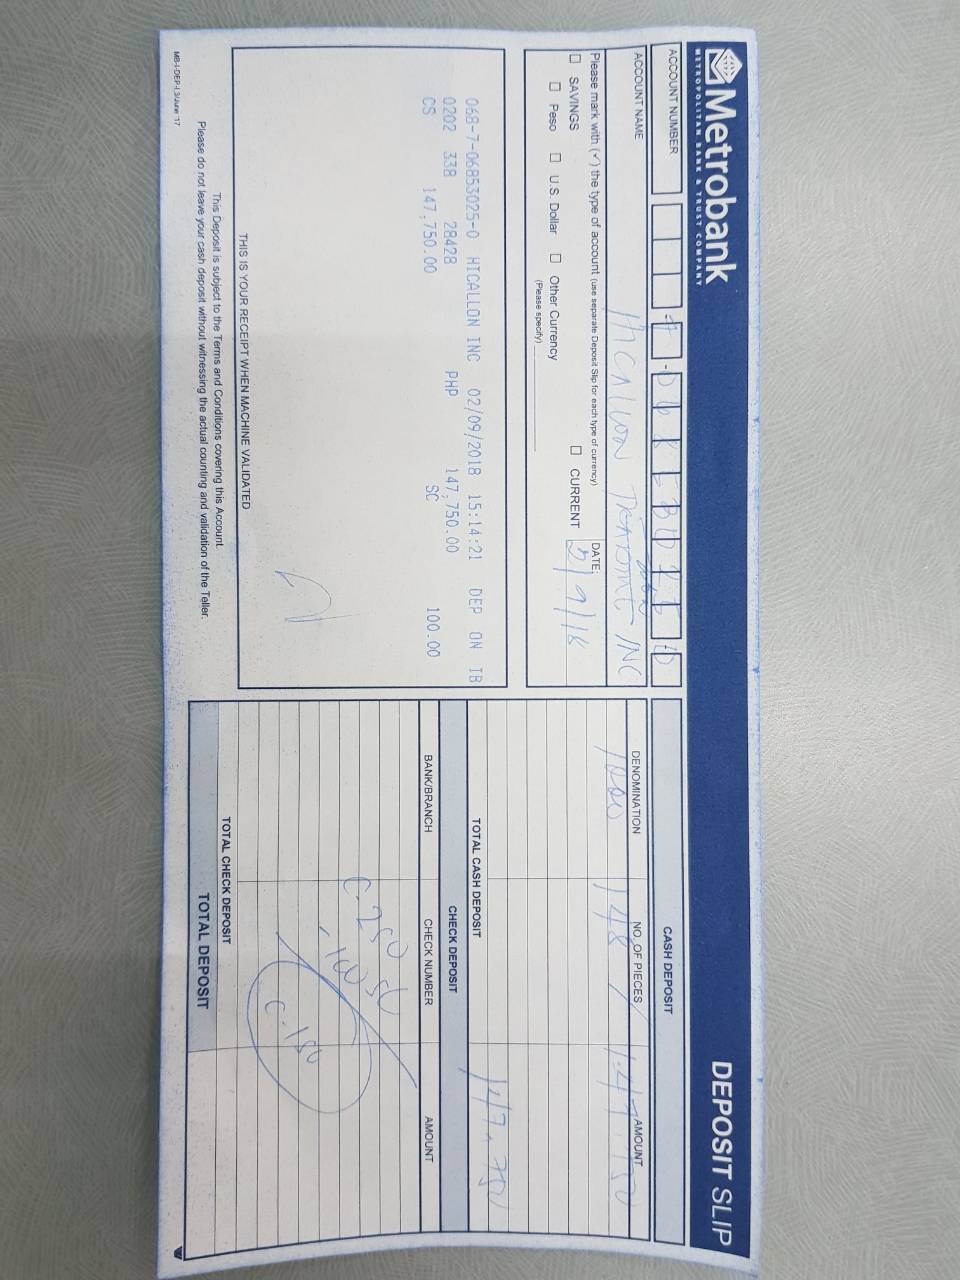 Metrobank
METROPOLITAN BANK & TRUST COMPANY
DEPOSIT SLIP
ACCOUNT NUMBER
7-
ACCOUNT NAME
INC
Please mark with (✓) the type of account (use separate Deposit Slip for each type of currency)
DATE:
2/9/18
☐ SAVINGS
☐ CURRENT
☐ Peso ☐ U.S. Dollar ☐ Other Currency
(Please specify)
068-7-06853025-0 HICALLON INC 02/09/2018 15:14:21 DEP ON IB
0202 338 28428 PHP 147,750.00
CS 147,750.00 SC 100.00
THIS IS YOUR RECEIPT WHEN MACHINE VALIDATED
This Deposit is subject to the Terms and Conditions covering this Account.
Please do not leave your cash deposit without witnessing the actual counting and validation of the Teller.
MB-I-DEP-I.3/June '17
CASH DEPOSIT
DENOMINATION NO. OF PIECES AMOUNT
1000 148 147,750
TOTAL CASH DEPOSIT 147,750
CHECK DEPOSIT
BANK/BRANCH CHECK NUMBER AMOUNT
C-250
C-150
TOTAL CHECK DEPOSIT
TOTAL DEPOSIT